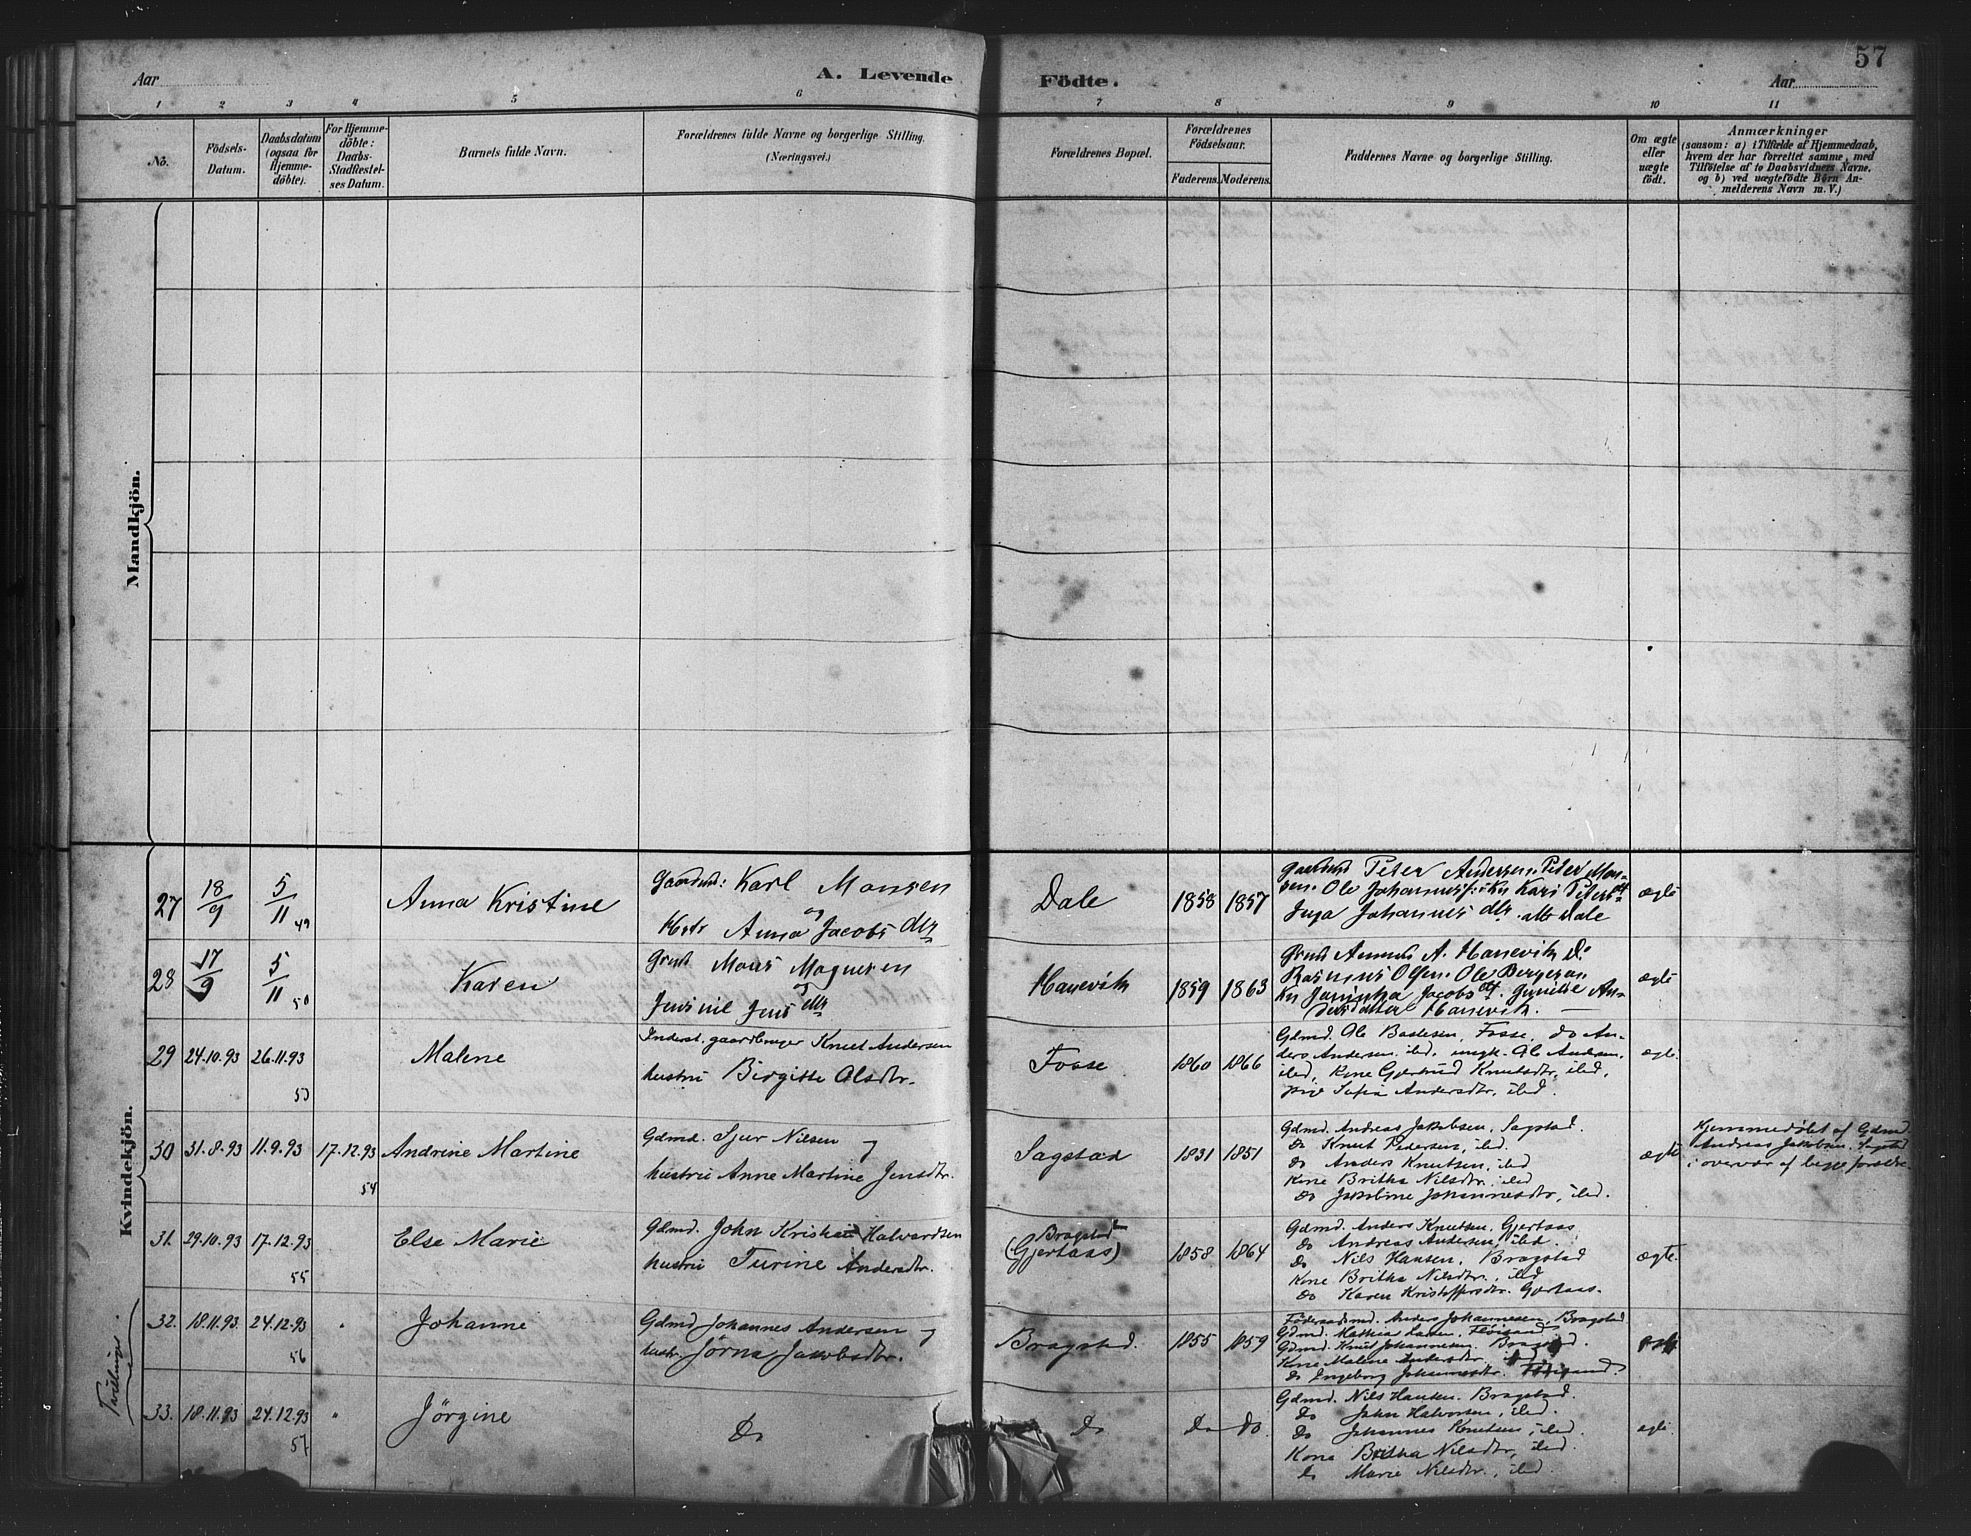 57
Aar
A. Levende
Födte.
Aar
1 2 3 4 5 6 7 8 9 10 11
No.
Födsels-
Datum.
Daabsdatum
(ogsaa for
Hjemme-
döbte).
For Hjemme-
döbte:
Daabs-
Stadfæstel-
ses Datum.
Barnets fulde Navn.
Forældrenes fulde Navne og borgerlige Stilling.
(Næringsvei.)
Forældrenes Bopæl.
Forældrenes
Födselsaar.
Faderens. Moderens.
Faddernes Navne og borgerlige Stilling.
Om ægte
eller
uægte
födt.
Anmærkninger
(saasom: a) i Tilfælde af Hjemmedaab,
hvem der har forrettet samme, med
Tilföielse af to Daabsvidners Navne,
og b) ved uægtefödte Börn An-
melderens Navn m. V.)
Mandkjön.
Kvindekjön.
27 18/9 5/11 49 Anna Kristine
Gaardmd: Karl Monsen
og
Hstr Anna Jacobs dtr
Dale 1858 1857
Gaardmd Peter Andersen. Peter Mon-
sen. Ole Johannes: Kn Kari Peters
Inga Johannes dtr. alle Dale
ægte
28 17/9 5/11 50 Karen
Grmd Mons Magnesen
og
Jens dtr
Hanevik 1859 1863
Grmd A. Hanevik do
Rasmus Olsen. Ole Bergesen
Kn Jacobs dtr. An-
dersdatter Hanevik.
ægte
29 24.10.93 26.11.93 53 Malene
Inderst. gaardbruger Knut Andersen
hustru Birgitte Olsdtr.
Fosse 1860 1866
Gdmd. Ole Fosse, do An-
ders Andersen ibd, ungk. Ole Andersen,
ibd, Kone Gjertrud Knutsdtr, ibd,
pige Sofia Andersdtr, ibd.
ægte.
30 31.8.93 11.9.93 17.12.93 54 Andrine Martine
Gdmd. Sjur Nilsen og
hustru Anne Martine Jensdtr.
Sagstad 1831 1851
Gdmd. Andreas Jakobsen, Sagstad.
do Knut Pedersen, ibd.
do Anders Knutsen, ibd
Kone Britha Nilsdtr, ibd
do Jakobine Johannesdtr, ibd.
ægte
Hjemmedøbt af Gdmd.
Andreas Jakobsen, Sagstad
i overvær af begge foreldre
31. 29.10.93 17.12.93 55 Else Marie
Gdmd. John Kristian Halvardsen
hustru Turine Andersdtr.
Bragstad
(Gjertaas) 1858 1864
Gdmd. Anders Knutsen, Gjertaas
do Andreas Andersen, ibd.
do Nils Hansen, Bragstad
Kone Britha Nilsdtr, ibd
do Karen Kristoffersdtr. Gjertaas.
ægte.
Tvillinger.
32. 18.11.93. 24.12.93 56 " Johanne
Gdmd Johannes Andersen og
hustr. Jörna Jakobsdtr.
Bragstad. 1855 1859
Föderaadsmd. Anders Johannesen, Bragstad
Gdmd. Mathias Larsen,
Gdmd. Knut Johannesen. Bragstad.
Kone Malene Andersdtr. ibd
do Ingeborg Johannesdtr.
ægte
33. 18.11.93 24.12.93 57 " Jörgine
Do
Do Do Do.
Gdmd. Nils Hansen. Bragstad.
Do John Halvorsen, ibd.
Do Johannes Knutsen, ibd.
Kone Britha Nilsdtr, ibd.
do Marie Nilsdtr, ibd.
ægte.